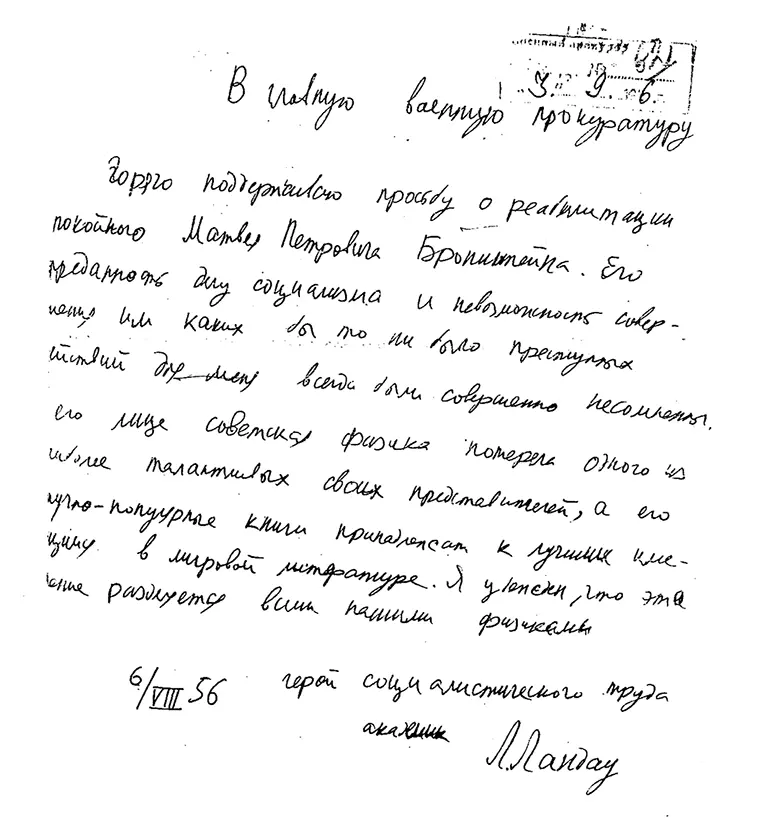 3 9 6
В главную военную прокуратуру
Горячо поддерживаю просьбу о реабилитации
покойного Матвея Петровича Бронштейна. Его
преданность делу социализма и невозможность совер-
шения им каких бы то ни было преступных
йствий для меня всегда были совершенно несомненны.
его лице советская физика потеряла одного из
иболее талантливых своих представителей, а его
аучно-популярные книги принадлежат к лучшим име-
ющимся в мировой литературе. Я убежден, что эта
разделяется всеми нашими физиками
6/VIII 56 герой социалистического труда
академик Л.Ландау